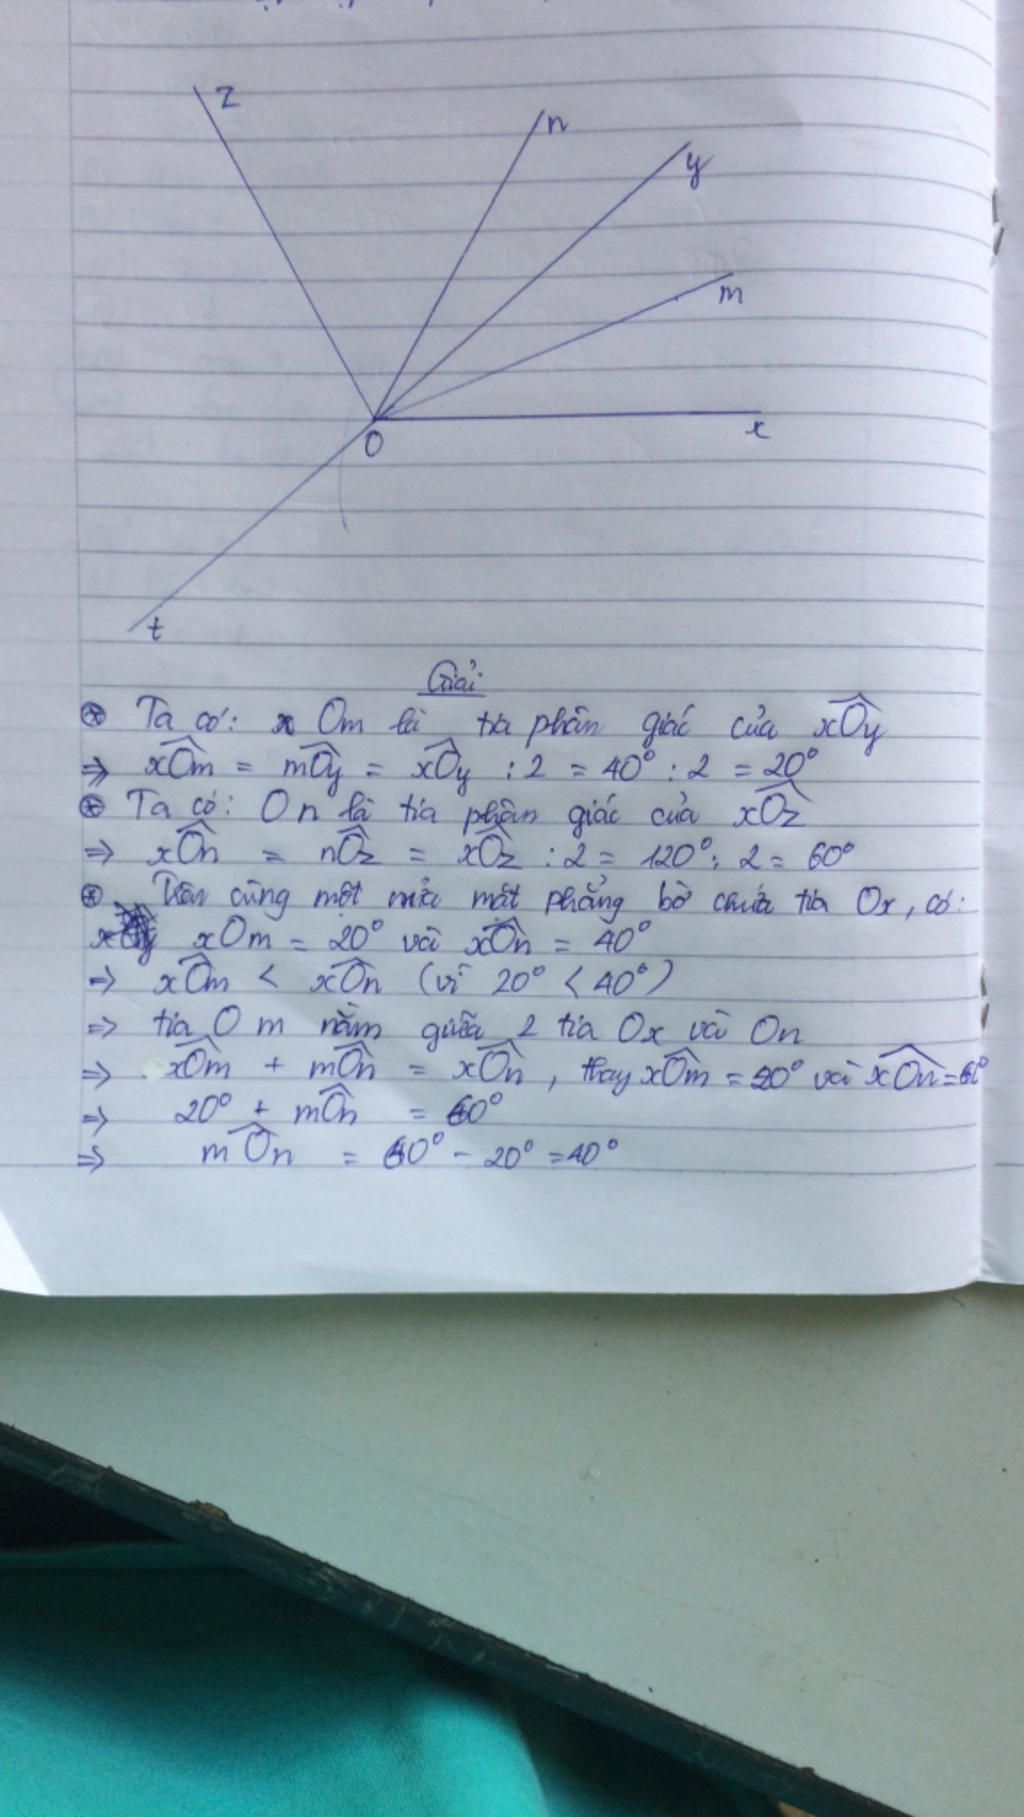 z
n
y
m
x
O
t
Giải:
⊛ Ta có: Om là tia phân giác của xOy
⇒ xOm = mOy = xOy : 2 = 40° : 2 = 20°
⊛ Ta có: On là tia phân giác của xOz
⇒ xOn = nOz = xOz : 2 = 120° : 2 = 60°
⊛ Trên cùng một nửa mặt phẳng bờ chứa tia Ox, có:
xOm = 20° và xOn = 40°
⇒ xOm < xOn (vì 20° < 40°)
⇒ tia Om nằm giữa 2 tia Ox và On
⇒ xOm + mOn = xOn, thay xOm = 20° và xOn = 60°
⇒ 20° + mOn = 60°
⇒ mOn = 60° - 20° = 40°